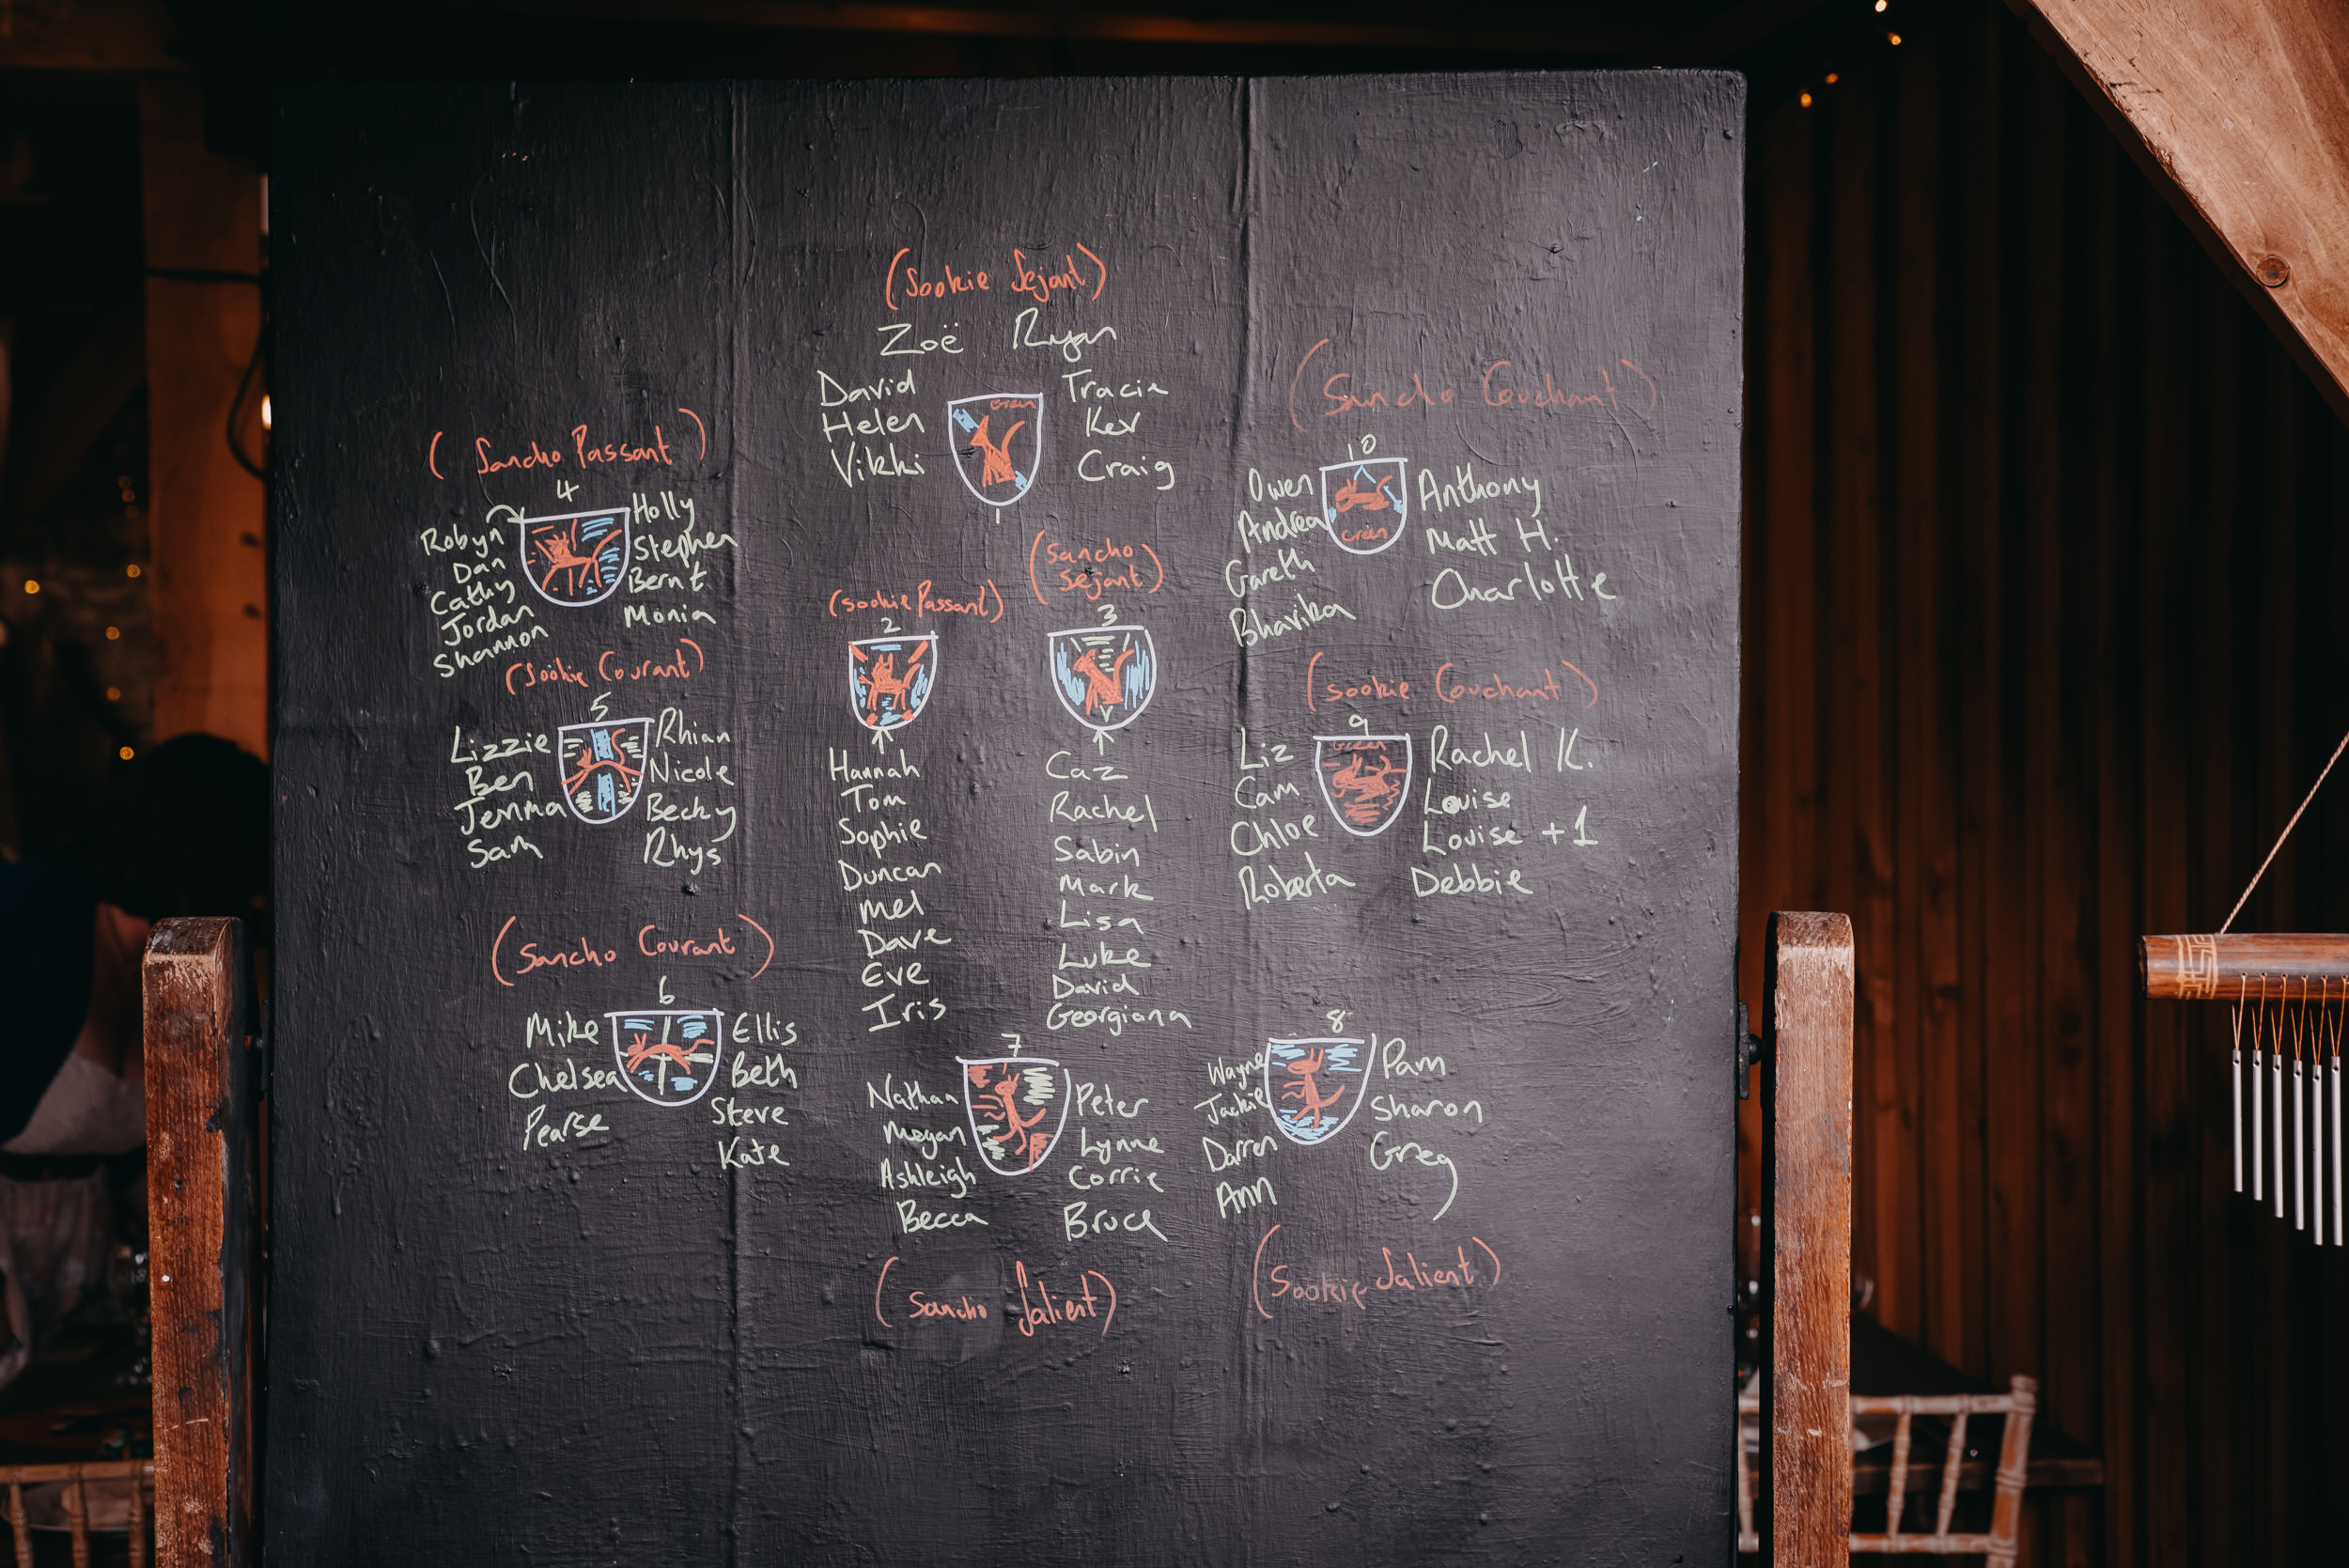 (Sookie Sejant)
Zoë Ryan
David
Helen
Vikki
Tracie
Kev
Craig
Green
1
(Sancho Passant)
4
Robyn
Dan
Cathy
Jordan
Shannon
Holly
Stephen
Bernt
Monia
(Sookie Courant)
5
Lizzie
Ben
Jemma
Sam
Rhian
Nicole
Becky
Rhys
(Sancho Courant)
6
Mike
Chelsea
Pearse
Ellis
Beth
Steve
Kate
(Sookie Passant)
2
Hannah
Tom
Sophie
Duncan
Mel
Dave
Eve
Iris
(Sancho
Sejant)
3
Caz
Rachel
Sabin
Mark
Lisa
Luke
David
Georgiana
(Sancho Couchant)
10
Owen
Andrea
Gareth
Bhavika
Anthony
Matt H.
Charlotte
Green
(Sookie Couchant)
9
Green
Liz
Cam
Chloe
Roberta
Rachel K.
Louise
Louise +1
Debbie
7
Nathan
Megan
Ashleigh
Becca
Peter
Lynne
Corrie
Bruce
(Sancho Salient)
8
Wayne
Jackie
Darren
Ann
Pam
Sharon
Greg
(Sookie Salient)